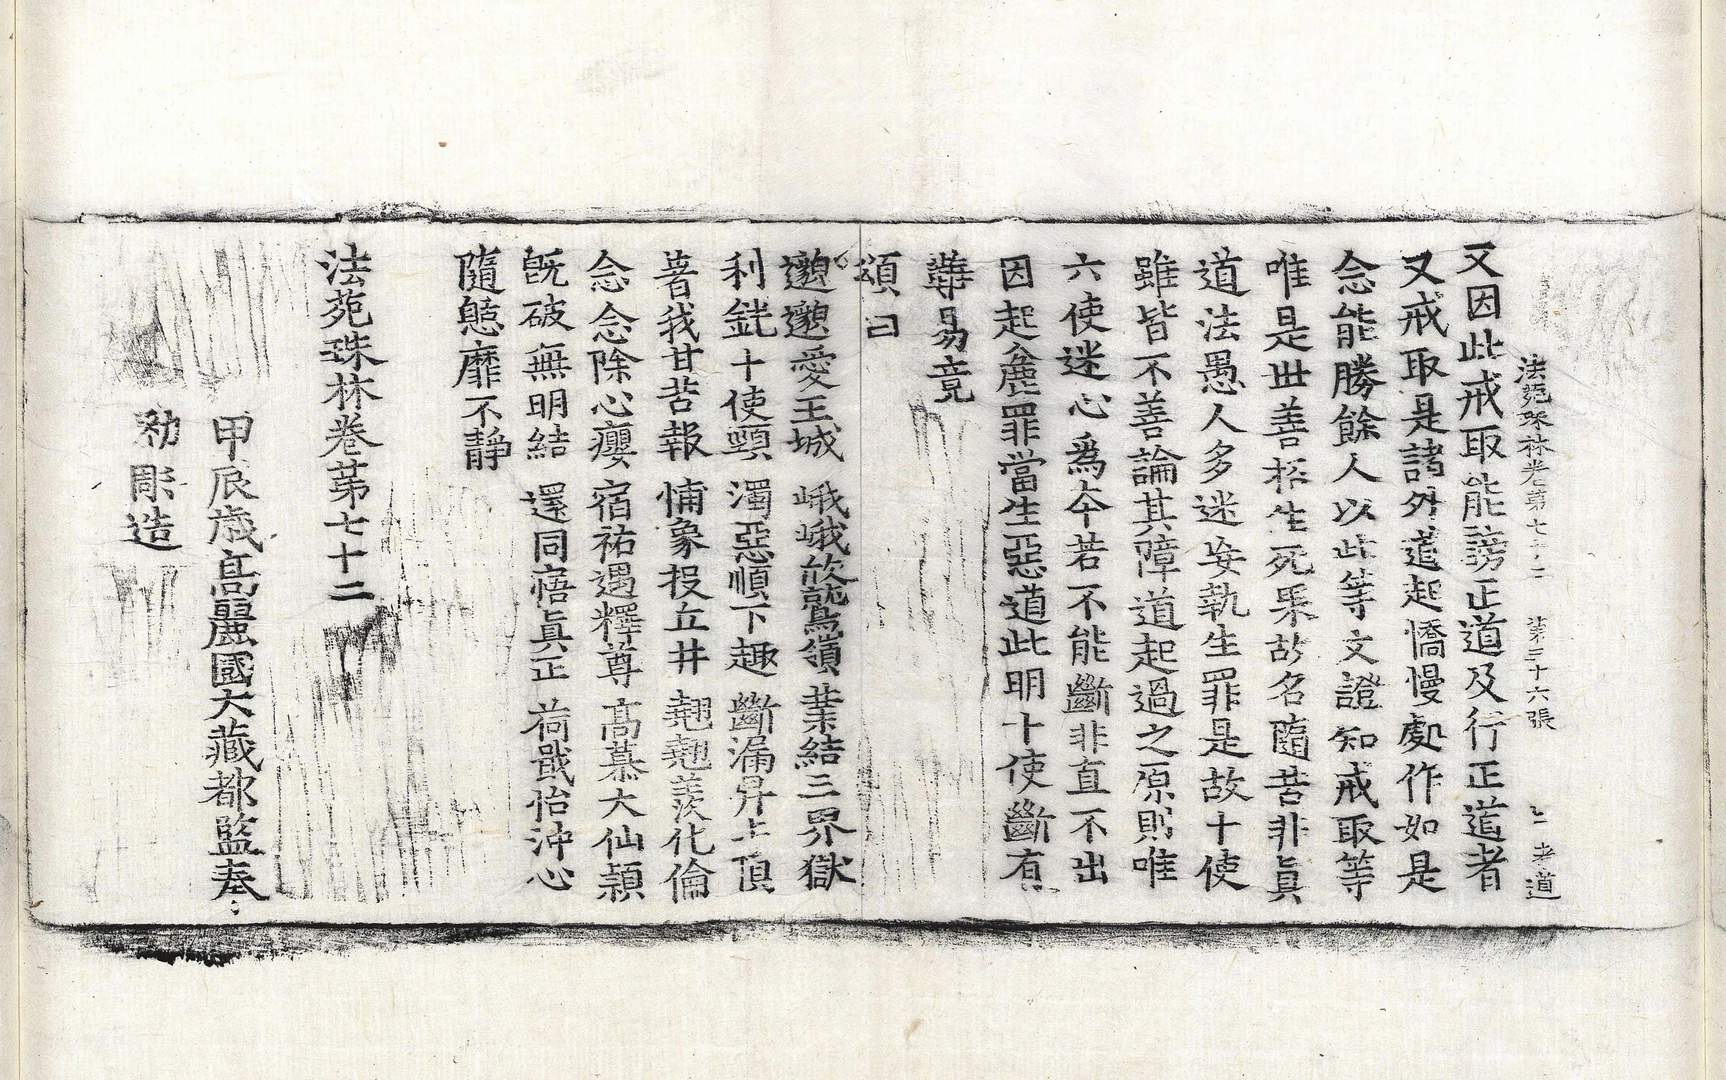 法苑珠林卷第七十二 第三十六張 老道
又因此戒取能謗正道及行正道者
又戒取是諸外道起憍慢處作如是
念能勝餘人以此等文證知戒取等
唯是世善招生死果故名隨苦非眞
道法愚人多迷妄執生罪是故十使
雖皆不善論其障道起過之原則唯
六使迷心爲本若不能斷非直不出
因起麁罪當生惡道此明十使斷有
難易竟
頌曰
邈邈愛王城 峨峨欲鷲嶺 業結三界獄
利銳十使頸 濁惡順下趣 斷漏昇上頂
著我甘苦報 慵象投丘井 翹翹羨化倫
念念除心癭 宿祐遇釋尊 高慕大仙頴
旣破無明結 還同悟眞正 荷戢怡沖心
隨慈靡不靜
法苑珠林卷第七十二
甲辰歲高麗國大藏都監奉
勑彫造